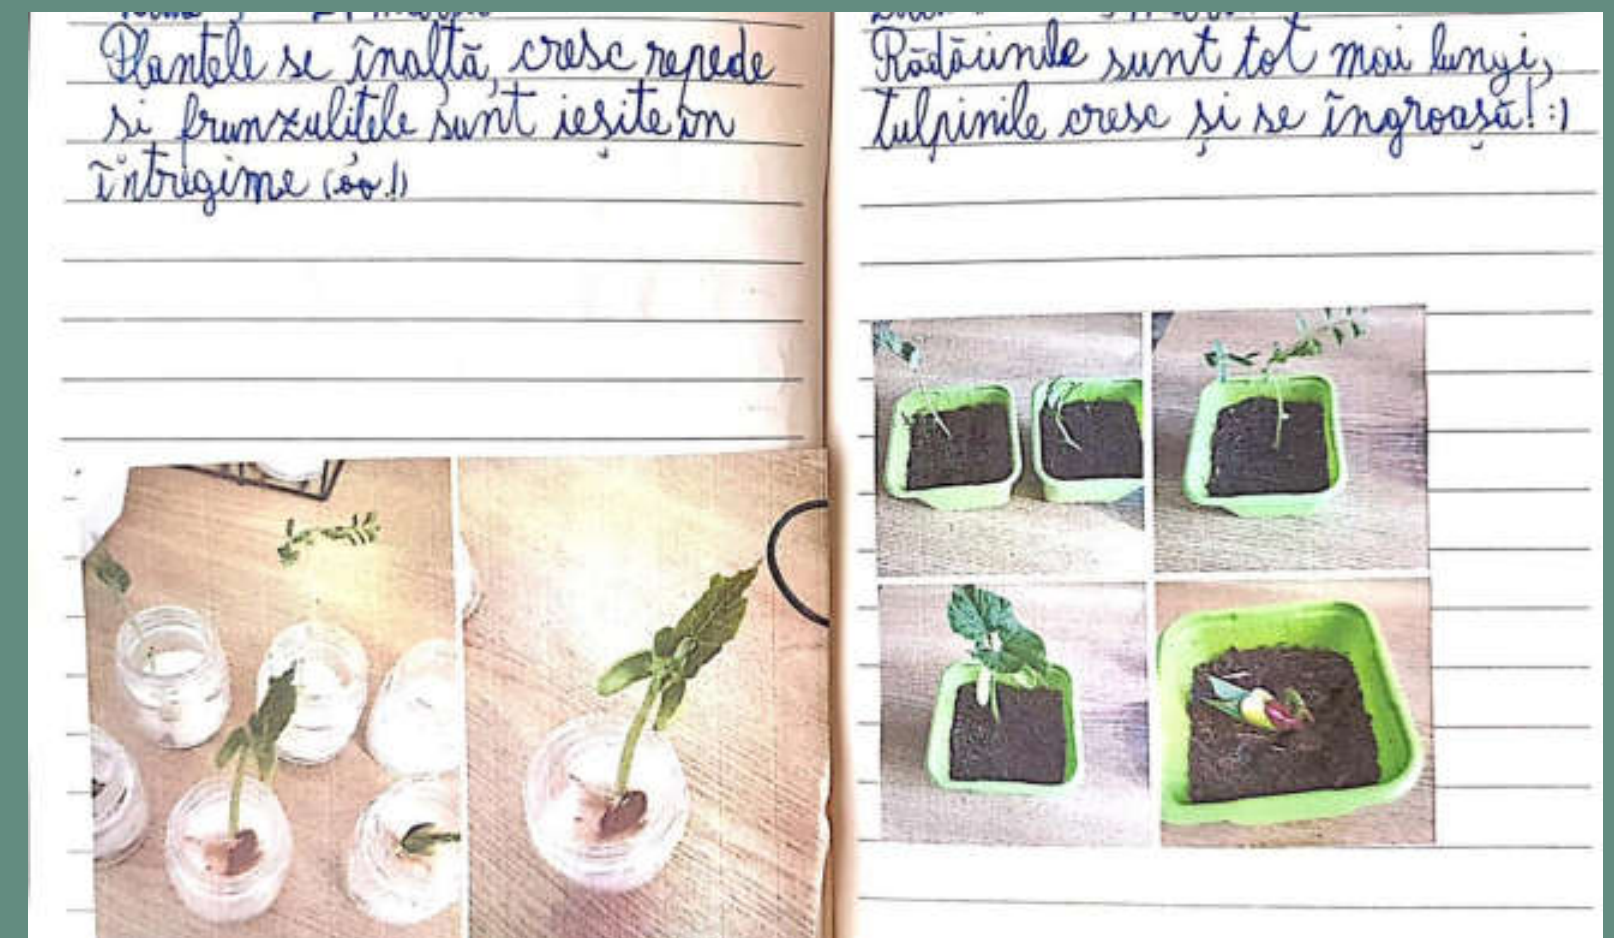 Plantele se înalță, cresc repede
și frunzulițele sunt ieșite în
întregime (óo!)
Rădăcinile sunt tot mai lungi,
tulpinile cresc și se îngroașă! :)